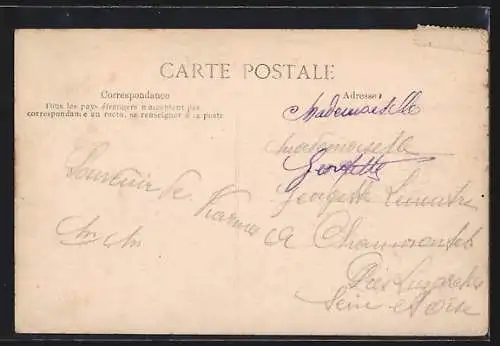 CARTE POSTALE
Correspondance
Tous les pays étrangers n'acceptent pas
correspondance au recto, se renseigner à la poste
Souvenir de
Adresse
Mademoiselle
Mademoiselle
Georgette
Georgette Lemaitre
à
Près Luzarches
Seine et Oise